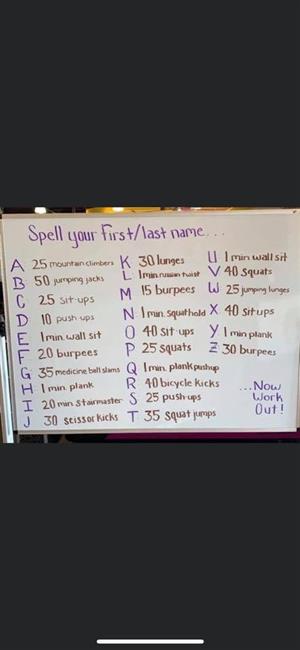 Spell your first/last name...
A 25 mountain climbers
B 50 jumping jacks
C 25 sit-ups
D 10 push ups
E 1min.wall sit
F 20 burpees
G 35 medicine ball slams
H 1 min. plank
I 20 min. Stairmaster
J 30 scissor kicks
K 30 lunges
L 1min.russian twist
M 15 burpees
N 1 min. squat hold
O 40 sit-ups
P 25 squats
Q 1min. plank pushup
R 40 bicycle kicks
S 25 push-ups
T 35 squat jumps
U 1 min wall sit
V 40 squats
W 25 jumping lunges
X 40 sit ups
Y 1 min plank
Z 30 burpees
...Now
Work
Out!